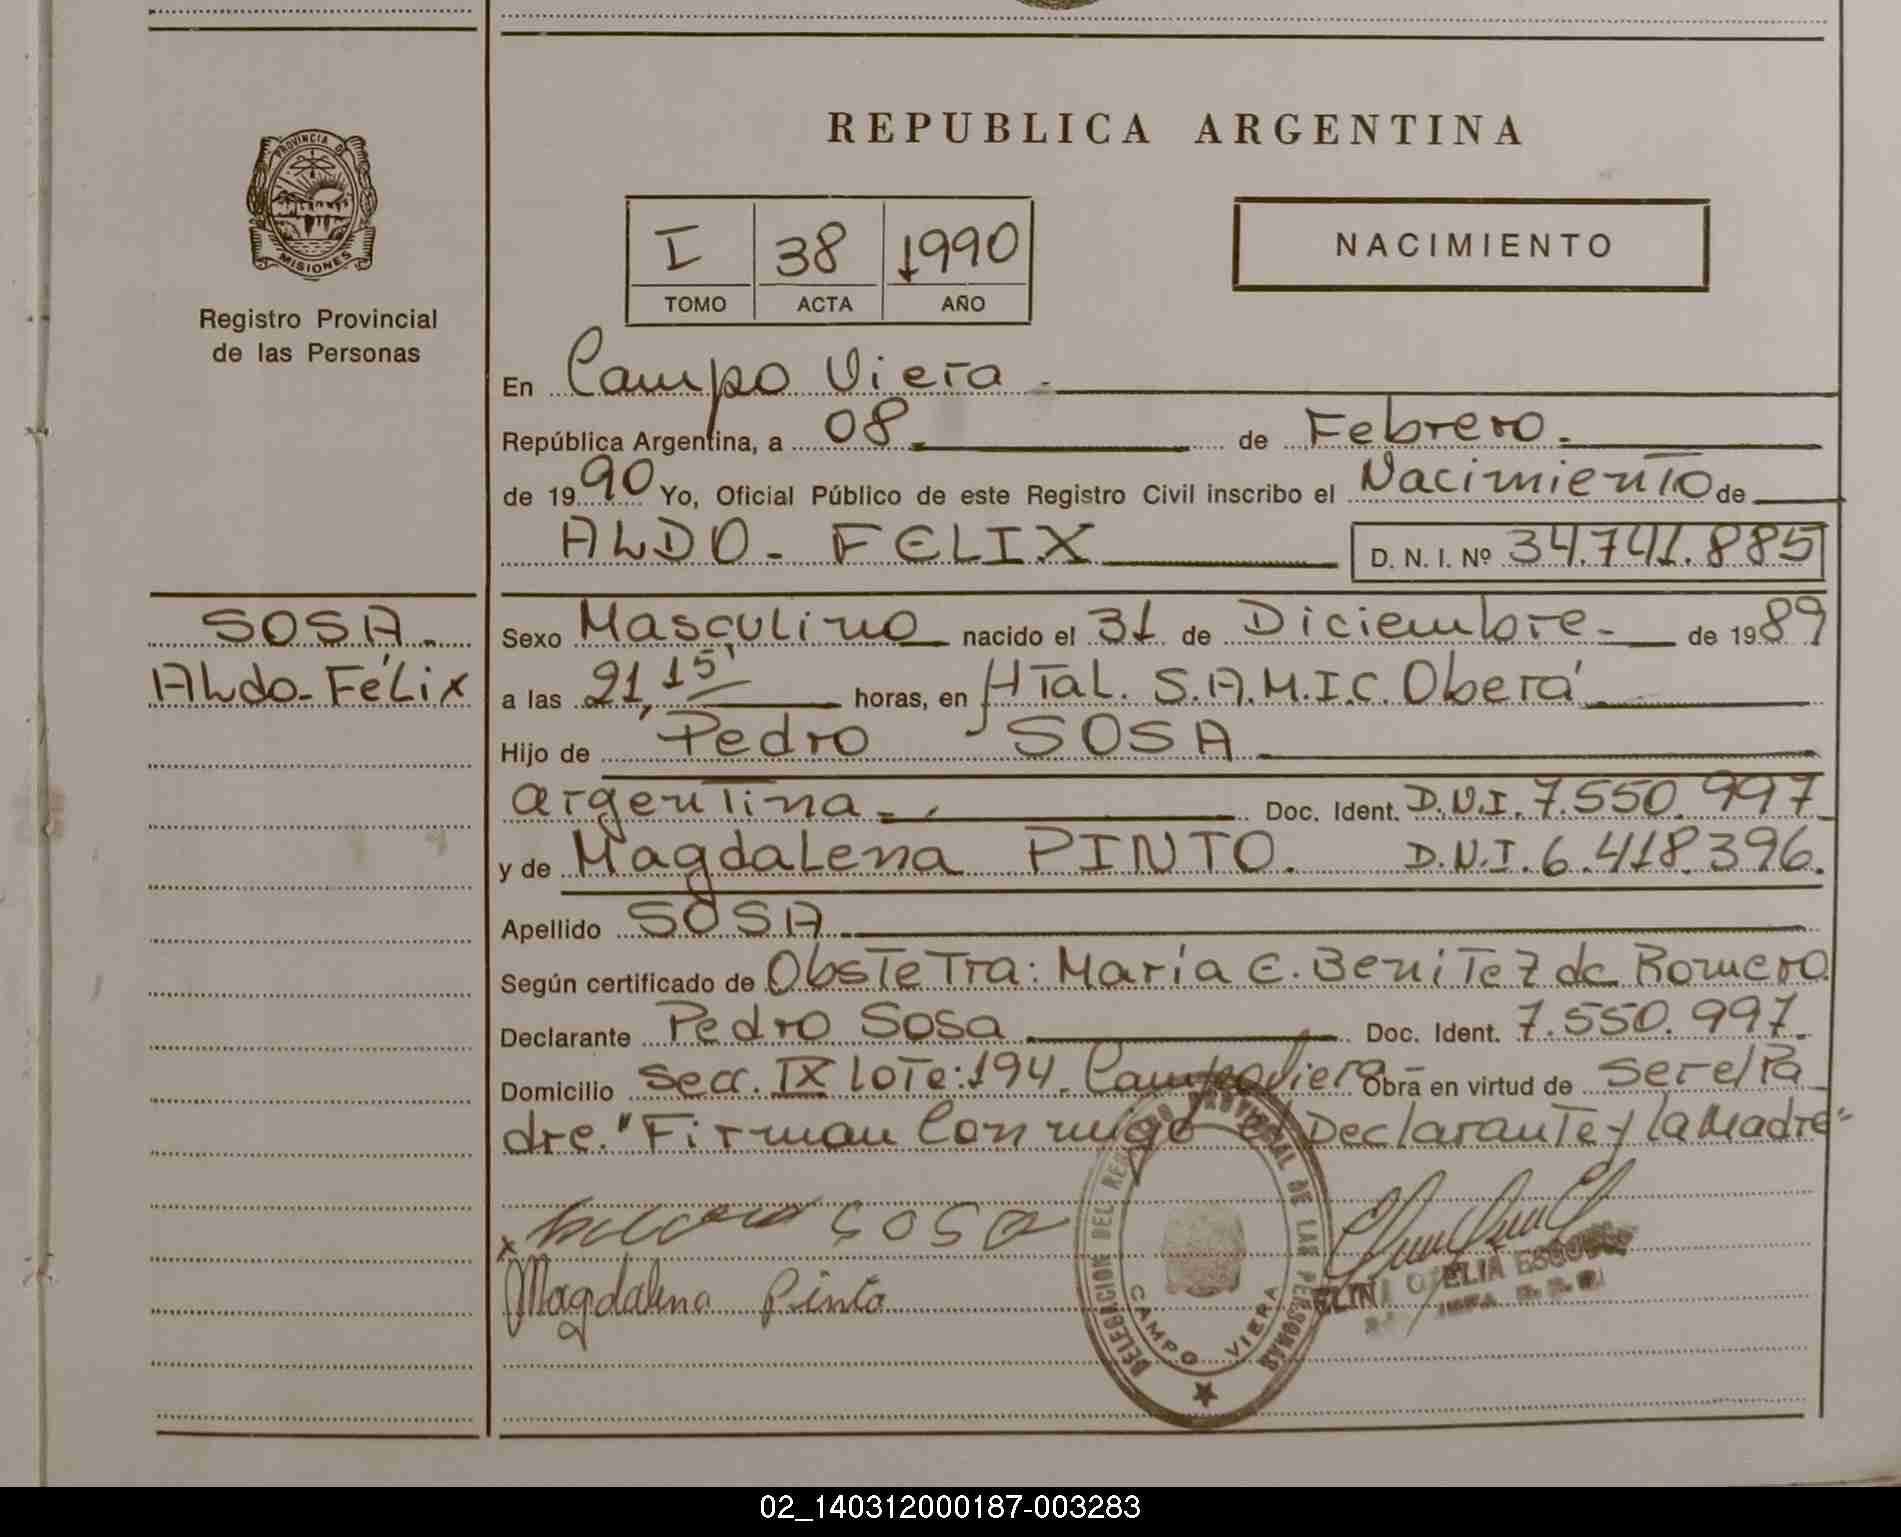 REPUBLICA ARGENTINA
PROVINCIA D
MISIONES
Registro Provincial
de las Personas
I 38 1990
TOMO ACTA AÑO
NACIMIENTO
En Campo Viera
República Argentina, a 08 de Febrero.
de 1990 Yo, Oficial Público de este Registro Civil inscribo el Nacimiento de
ALDO - FELIX D. N. I. Nº 34.741.885
SOSA.
Aldo-Félix
Sexo Masculino nacido el 31 de Diciembre - de 1989
a las 21,15' horas, en HTal. S.A.M.I.C. Oberá
Hijo de Pedro SOSA
argentina - Doc. Ident. D.N.I. 7.550.997
y de Magdalena PINTO. D.N.I. 6.418.396.
Apellido SOSA
Según certificado de Obstetra: María E. Benitez de Romero.
Declarante Pedro Sosa Doc. Ident. 7.550.997.
Domicilio Secc. IX lote: 194. Campo Viera Obra en virtud de ser el Pa
dre. "Firman Conmigo el Declarante y la Madre"
x SOSA
Magdalena Pinto
DELEGACION DEL REGISTRO PROVINCIAL DE LAS PERSONAS
CAMPO VIERA
OTELIA
02_140312000187-003283